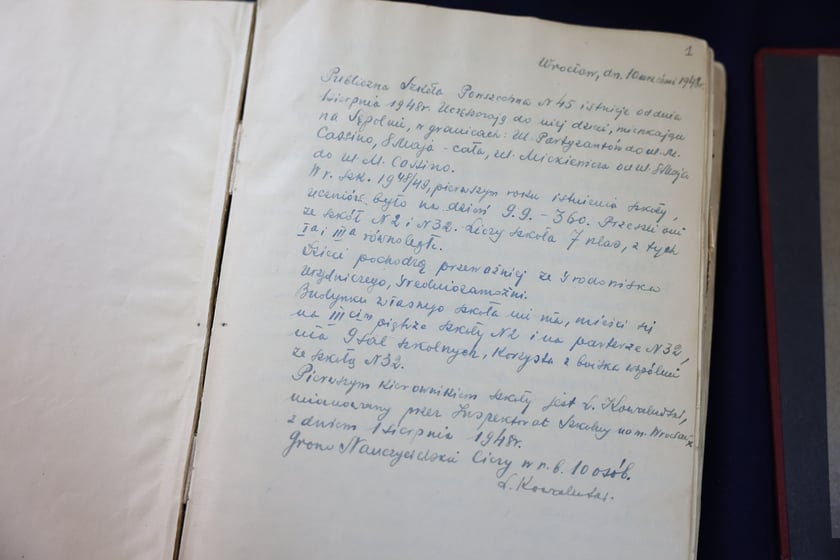 1
Wrocław, dn. 10 września 1948r.
Publiczna Szkoła Powszechna N 45 istnieje od dnia
1 sierpnia 1948r. Uczęszczają do niej dzieci, mieszkające
na Sępolnie, w granicach: ul. Partyzantów do ul. M.
Cassino, 8 Maja - cała, ul. Mickiewicza od ul. 8 Maja
do ul. M. Cassino.
W r. szk. 1948/49, pierwszym roku istnienia szkoły,
uczniów było na dzień 9.9. - 360. Przeszli oni
ze szkół N 2 i N 32. Liczy szkoła 7 klas, z tych
Ia i IIIa równoległe.
Dzieci pochodzą przeważnie ze środowiska
urzędniczego, średniozamożni.
Budynku własnego szkoła nie ma, mieści się
na III cim piętrze szkoły N 2 i na parterze N 32,
ma 9 sal szkolnych, korzysta z boiska wspólnie
ze szkołą N 32.
Pierwszym kierownikiem szkoły jest
mianowany przez Inspektorat Szkolny na m. Wrocław
z dniem 1 sierpnia 1948r.
Grono Nauczycielskie liczy w r. b. 10 osób.